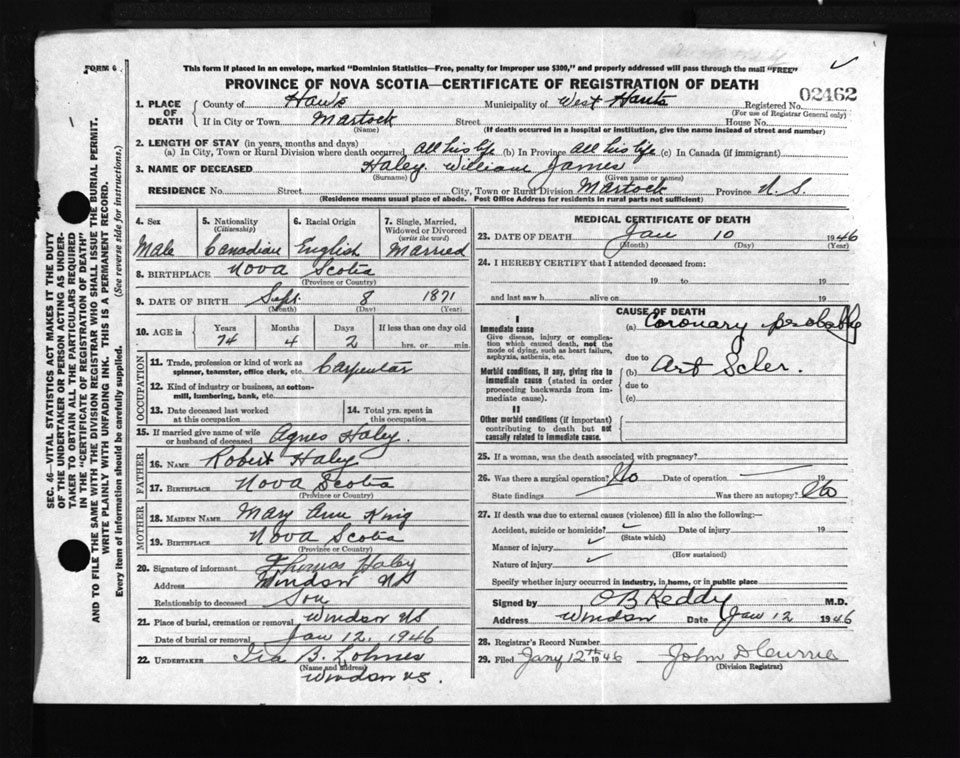 FORM 6
This form if placed in an envelope, marked "Dominion Statistics—Free, penalty for improper use $300," and properly addressed will pass through the mail "FREE"
PROVINCE OF NOVA SCOTIA—CERTIFICATE OF REGISTRATION OF DEATH
02462
1. PLACE OF DEATH
County of Hants Municipality of West Hants Registered No.
(For use of Registrar General only)
If in City or Town Martock Street House No.
(Name) (If death occurred in a hospital or institution, give the name instead of street and number)
2. LENGTH OF STAY (in years, months and days)
(a) In City, Town or Rural Division where death occurred All his life (b) In Province All his life (c) In Canada (if immigrant)
3. NAME OF DECEASED Haley William James
(Surname) (Given name or names)
RESIDENCE No. Street City, Town or Rural Division Martock Province N.S.
(Residence means usual place of abode. Post Office Address for residents in rural parts not sufficient)
SEC. 46—VITAL STATISTICS ACT MAKES IT THE DUTY
OF THE UNDERTAKER OR PERSON ACTING AS UNDER-
TAKER TO OBTAIN ALL THE PARTICULARS REQUIRED
IN THE "CERTIFICATE OF REGISTRATION OF DEATH"
AND TO FILE THE SAME WITH THE DIVISION REGISTRAR WHO SHALL ISSUE THE BURIAL PERMIT.
WRITE PLAINLY WITH UNFADING INK. THIS IS A PERMANENT RECORD.
Every item of information should be carefully supplied. (See reverse side for instructions.)
4. Sex
Male
5. Nationality
(Citizenship)
Canadian
6. Racial Origin
English
7. Single, Married,
Widowed or Divorced
(write the word)
Married
8. BIRTHPLACE Nova Scotia
(Province or Country)
9. DATE OF BIRTH Sept. 8 1871
(Month) (Day) (Year)
10. AGE in
Years Months Days If less than one day old
74 4 2 hrs. or min.
OCCUPATION
11. Trade, profession or kind of work as
spinner, teamster, office clerk, etc. Carpenter
12. Kind of industry or business, as cotton-
mill, lumbering, bank, etc.
13. Date deceased last worked
at this occupation
14. Total yrs. spent in
this occupation
15. If married give name of wife
or husband of deceased Agnes Haley.
FATHER
16. NAME Robert Haley
17. BIRTHPLACE Nova Scotia
(Province or Country)
MOTHER
18. MAIDEN NAME Mary Ann King
19. BIRTHPLACE Nova Scotia
(Province or Country)
20. Signature of informant Thomas Haley
Address Windsor NS
Relationship to deceased Son
21. Place of burial, cremation or removal Windsor NS
Date of burial or removal Jan 12. 1946
22. UNDERTAKER Ira B. Lohnes
(Name and address)
Windsor NS.
MEDICAL CERTIFICATE OF DEATH
23. DATE OF DEATH Jan 10 1946
(Month) (Day) (Year)
24. I HEREBY CERTIFY that I attended deceased from:
19 to 19
and last saw h alive on 19
CAUSE OF DEATH
I
Immediate cause
Give disease, injury or complica-
tion which caused death, not the
mode of dying, such as heart failure,
asphyxia, asthenia, etc.
(a) Coronary probably
due to
Morbid conditions, if any, giving rise to
immediate cause (stated in order
proceeding backwards from im-
mediate cause).
(b) Art Scler.
due to
(c)
II
Other morbid conditions (if important)
contributing to death but not
causally related to immediate cause.
25. If a woman, was the death associated with pregnancy?
26. Was there a surgical operation? No Date of operation — 19
State findings Was there an autopsy? No
27. If death was due to external causes (violence) fill in also the following:—
Accident, suicide or homicide? ✓ Date of injury 19
(State which)
Manner of injury ✓
(How sustained)
Nature of injury ✓
Specify whether injury occurred in industry, in home, or in public place
Signed by O B Reddy M.D.
Address Windsor Date Jan 12 1946
28. Registrar's Record Number
29. Filed Jany 12th 1946 John D Currie
(Division Registrar)